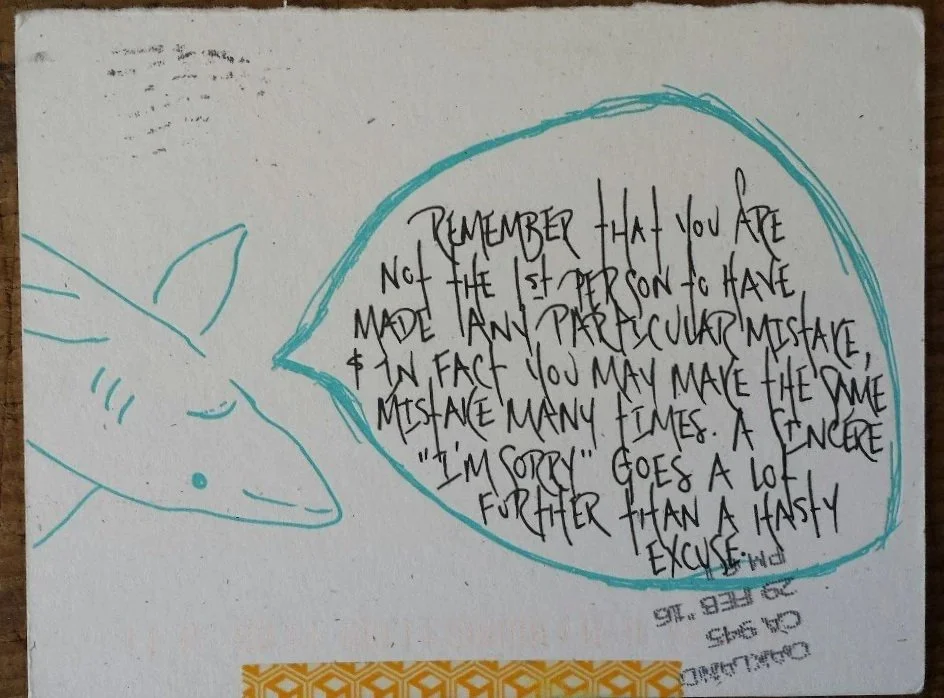 REMEMBER THAT YOU ARE
NOT THE 1ST PERSON TO HAVE
MADE ANY PARTICULAR MISTAKE,
& IN FACT YOU MAY MAKE THE SAME
MISTAKE MANY TIMES. A SINCERE
"I'M SORRY" GOES A LOT
FURTHER THAN A HASTY
EXCUSE.
OAKLAND
CA 945
29 FEB '16
PM